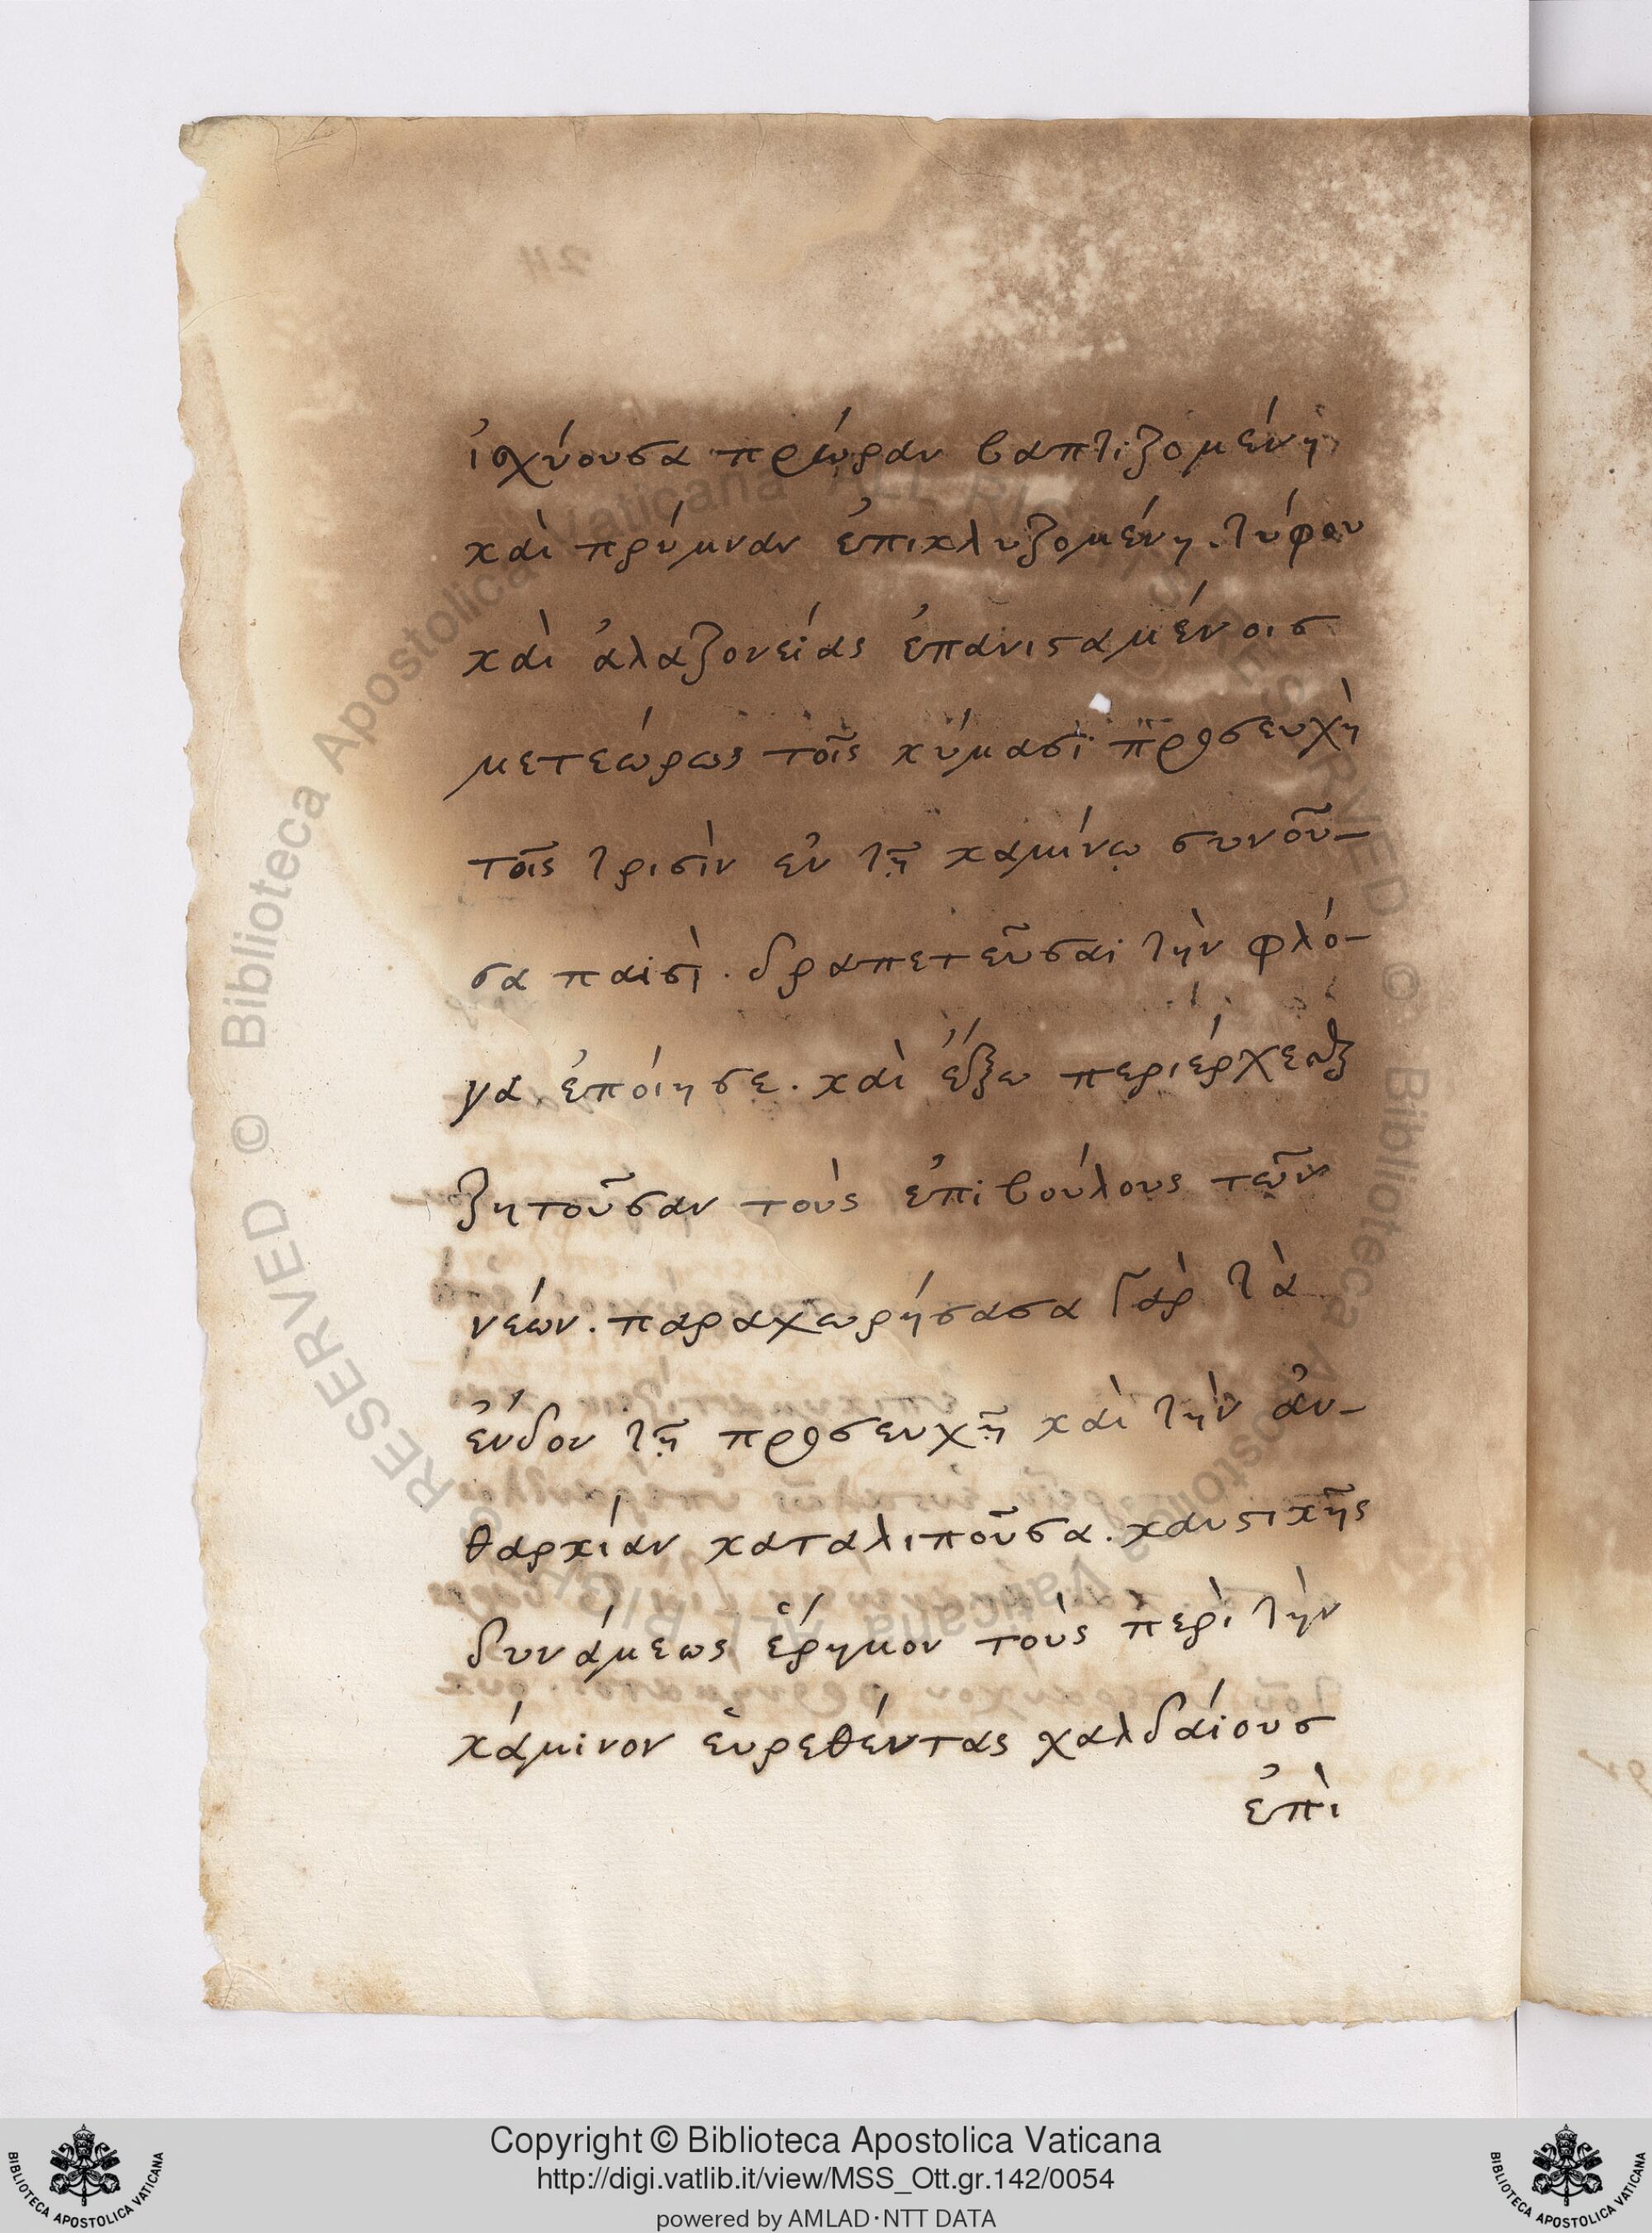 ἰσχύουσα πρώραν βαπτιζομένη
καὶ πρύμναν ἐπικλυζομένη. τύφου
καὶ ἀλαζονείας ἐπανισταμένοισ
μετεώρως τοῖς κύμασι προσευχὴ
τοῖς τρισὶν ἐν τῇ καμίνῳ συνοῦ-
σα παισὶ. δραπετεῦσαι τὴν φλό-
γα ἐποίησε. καὶ ἔξω περιέρχεσθαι
ζητοῦσαν τοὺς ἐπιβούλους τῶν
νέων. παραχωρήσασα γὰρ τὰ
ἔνδον τῇ προσευχῇ καὶ τὴν ἀν-
θαρκίαν καταλιποῦσα. καυστικῆς
δυνάμεως ἔρημον τοὺς περὶ τὴν
κάμινον εὑρεθέντας χαλδαίουσ
ἐπὶ
© Biblioteca Apostolica Vaticana ALL RIGHTS RESERVED © Biblioteca Apostolica Vaticana ALL RIGHTS RESERVED
Copyright © Biblioteca Apostolica Vaticana
http://digi.vatlib.it/view/MSS_Ott.gr.142/0054
powered by AMLAD·NTT DATA
BIBLIOTECA APOSTOLICA VATICANA
BIBLIOTECA APOSTOLICA VATICANA